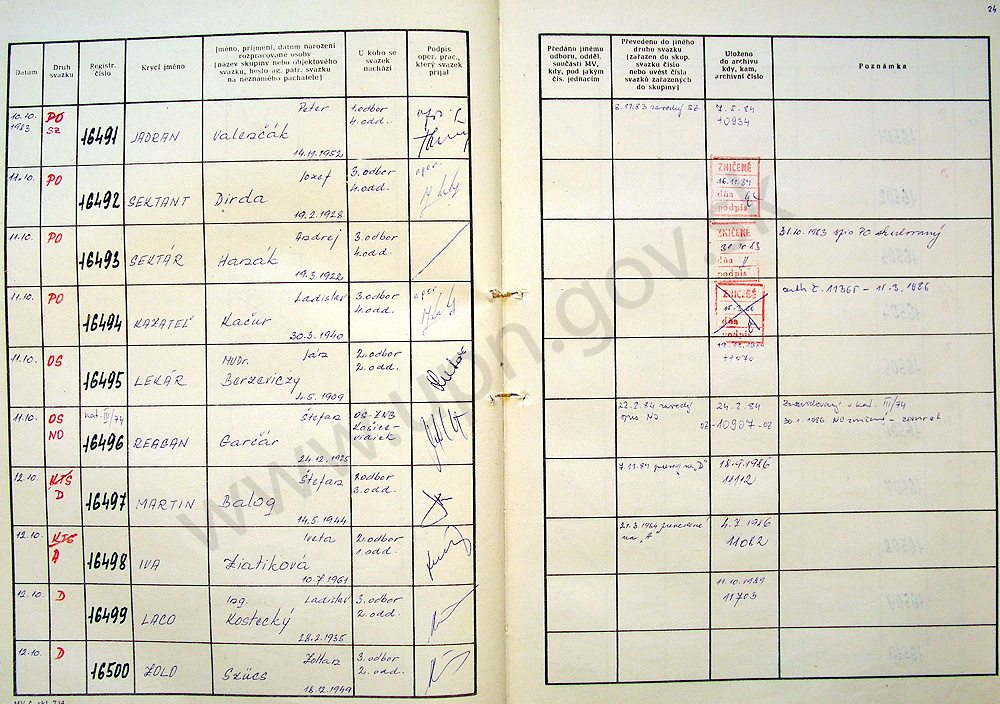 24
Datum
Druh svazku
Registr. číslo
Krycí jméno
Jméno, příjmení, datum narození
rozpracované osoby
(název skupiny nebo objektového
svazku, heslo ag. pátr. svazku
na neznámého pachatele)
U koho se
svazek
nachází
Podpis
oper. prac.,
který svazek
přijal
Předáno jinému
odboru, odděl.
součásti MV,
kdy, pod jakým
čís. jednacím
Převedeno do jiného
druhu svazku
(zařazen do skup.
svazku číslo
nebo uvést čísla
svazků zařazených
do skupiny)
Uloženo
do archivu
kdy, kam,
archivní číslo
Poznámka
10.10. 1983 PO SZ 16491 JADRAN Peter Valenčák 14.11.1952 1.odbor 4.odd.
8.11.83 zavedený SZ
7.5.84
10934
11.10. PO 16492 SEKTANT Jozef Dirda 19.2.1928 3.odbor 4.odd.
ZNIČENÉ
16.11.84
dňa
podpis
11.10. PO 16493 SEKTÁR Andrej Hanák 19.3.1922 3.odbor 4.odd.
ZNIČENÉ
31.10.83
dňa
podpis
31.10.1983 spis PO
11.10. PO 16494 KAZATEĽ Ladislav Kačur 30.3.1940 3.odbor 4.odd.
ZNIČENÉ
dňa
podpis
arch. č. 11365 - 15.3.1986
11.10. OS 16495 LEKÁR MUDr. Ján Berzeviczy 4.5.1909 2.odbor 2.odd.
11.10. OS NO kat. III/74 16496 REAGAN Štefan Garčár 24.12.1925 OS-ZNB Košice-vidiek
22.2.84 zavedený
24.2.84
OZ-10907-OZ
Zaevidovaný v kat. III/74
12.10. KTS D 16497 MARTIN Štefan Balog 14.5.1944 2.odbor 3.odd.
7.11.84 "D"
18.9.1986
11112
12.10. KTS A 16498 IVA Iveta Ziatiková 10.7.1961 2.odbor 1.odd.
21.3.1984 prevedené
na "A"
4.7.1986
11082
12.10. D 16499 LACO Ing. Ladislav Kostecký 28.2.1935 3.odbor 2.odd.
11.10.1989
11703
12.10. D 16500 ZOLO Zoltan Szücs 18.12.1949 3.odbor 2.odd.
www.upn.gov.sk